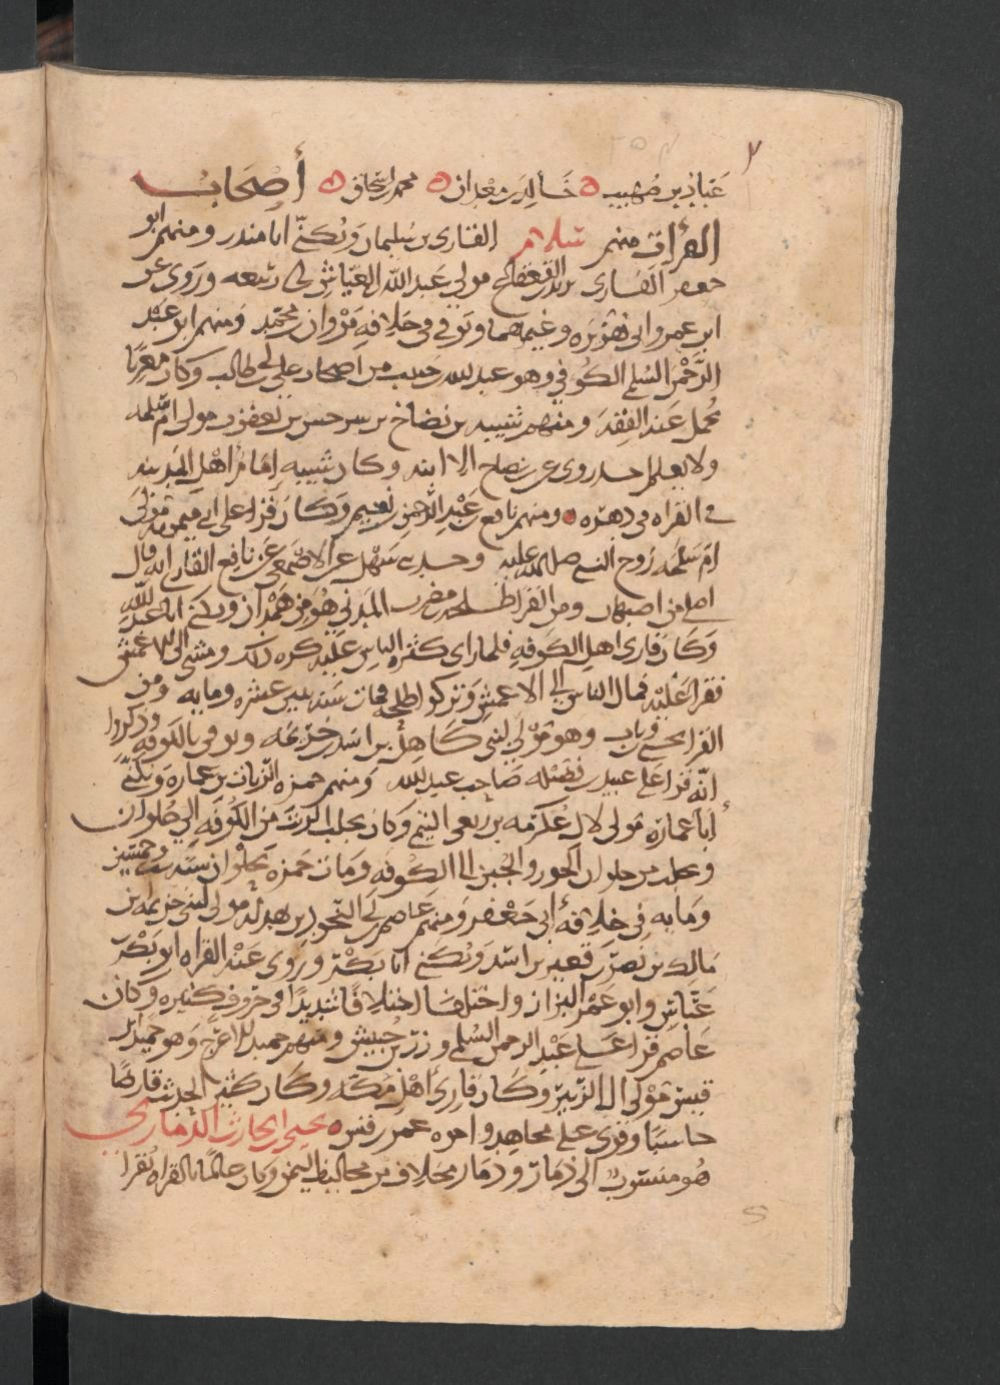 ٢
عباد بن صهيب ه خالد بن معدان ه محمد بن اسحاق ه أصحاب
القرآن منهم سلام القاري بن سليمان ويكنى ابا منذر ومنهم ابو
جعفر القاري يزيد بن القعقاع مولي عبد الله العياش لي ربيعه وروى عن
ابن عمر وابى هريره وغيرهما وتوفي في خلافه مروان بن محمد ومنهم ابو عبد
الرحمن السلمى الكوفي وهو عبد الله حبيب من اصحاب على بن ابى طالب وكان مقريا
يحمل عند الفقه ومنهم شيبه بن نصاح بن سرجس بن يعقوب مولى ام سلمه
ولا يعلم احد روى عن نصاح الا ابنه وكان شيبه إمام اهل المدينه
في القراه في دهره ه ومنهم نافع بن عبد الرحمن بن نعيم وكان قرا على ابى ميمونه مولى
ام سلمه زوج النبى صلى الله عليه وحدث سهل عن الاصمعى عن نافع القارى انه قال
اصلى من اصبهان ومن القرا طلحه بن مصرف المدني هو من همدان ويكنى ابا عبد الله
وكان قارى اهل الكوفه فلما راى كثره الناس عليه كره ذلك ومشى الى الاعمش
فقرا عليه فمال الناس الى الاعمش وتركوا طلحه فمات سنه اثنين عشره ومايه ومن
القرا يحيى بن وثاب وهو مولى لبنى كاهل بن اسد بن خزيمه وتوفى بالكوفه وذكروا
انه قرا على عبيد بن نضيله صاحب عبد الله ومنهم حمزه الزيات بن عماره ويكنى
ابا عماره مولى لال عكرمه بن ربعى التيمى وكان يجلب الزيت من الكوفه الي حلوان
ويجلب من حلوان الجوز والجبن الى الكوفه ومات حمزه بحلوان سنه ست وخمسين
ومايه في خلافة ابى جعفر ومنهم عاصم بن ابى النجود بن بهدله مولى لبنى خزيمه بن
مالك بن نصر بن قعين بن اسد ويكنى ابا بكر وروى عنه القراه ابو بكر بن
عياش وابو عمر البزاز واختلفا اختلافا شديدا في حروف كثيره وكان
عاصم قرا على عبد الرحمن السلمى وزر بن حبيش ومنهم حميد الاعرج وهو حميد بن
قيس مولى ال الزبير وكان قارى اهل مكه وكان كثير الحديث قاريًا
حاسبا وقرى على مجاهد واخوه عمر بن قيس ه يحيى بن الحارث الذماري
هو منسوب الى ذمار وذمار مخلاف من مخاليف اليمن وكان عالما بالقراه يقرا